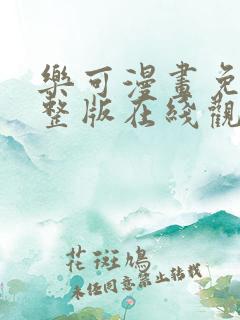 樂可漫畫免
整版在綫觀
花斑鳩
未经同意禁止转载